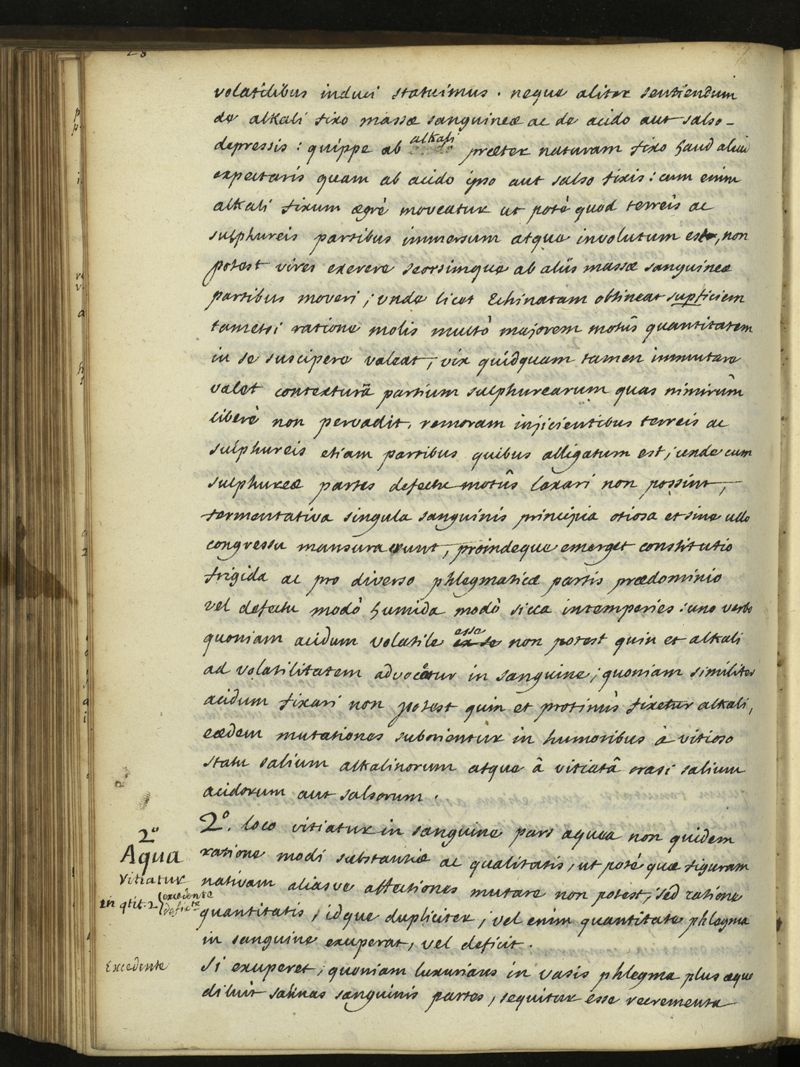 28
volatilibus induci statuimus. neque aliter sentiendum
de alkali fixo massæ sanguineæ ac de acido aut salso-
depressis: quippe ab alkali præter naturam fixo haud aliud
expectaris quam ab acido ipso aut salso fixis: cum enim
alkali fixum ægrè moveatur ut potè quod terreis ac
sulphureis partibus immersum atque involutum est, non
potest vires exerere seorsimque ab aliis massæ sanguineæ
partibus moveri; unde licet Echinatam obtineat supficiem
tametsi ratione molis multò majorem motûs quantitatem
in se suscipere valeat, vix quidquam tamen immutare
valet contexturã partium sulphurearum quas nimirùm
liberè non pervadit, remoram injicientibus terreis ac
sulphureis etiam partibus quibus alligatum est; unde cum
sulphureæ partes defectu motûs laxari non possint,
fermentativa singula sanguinis principia otiosa et sine ullo
congressu mansura erunt, proindeque emerget constitutio
frigida ac pro diverso phlegmaticæ partis prædominio
vel defectu modò humida modò sicca intemperies: uno verbo
quoniam acidum volatile esse non potest quin et alkali
ad volatilitatem advocetur in sanguine; quoniam similiter
acidum fixari non potest quin et protinùs fixetur alkali,
eædem mutationes suborientur in humoribus à vitioso
statu salium alkalinorum atque à vitiatâ crasi salium
acidorum aut salsorum.
2º. loco vitiatur in sanguine pars aquea non quidem
ratione modi substantiæ ac qualitatis, ut potè quæ figuram
nativam aliasve affectiones mutare non potest, sed ratione
quantitatis, idque dupliciter, vel enim quantitate phlegma
in sanguine exuperat, vel deficit.
Si exuperet, quoniam luxurians in vasis phlegma plus æquo
diluit salinas sanguinis partes, sequitur esse recrementa
2º
Aqua
Vitiatur
in qtit. 2 excedente
Excedente